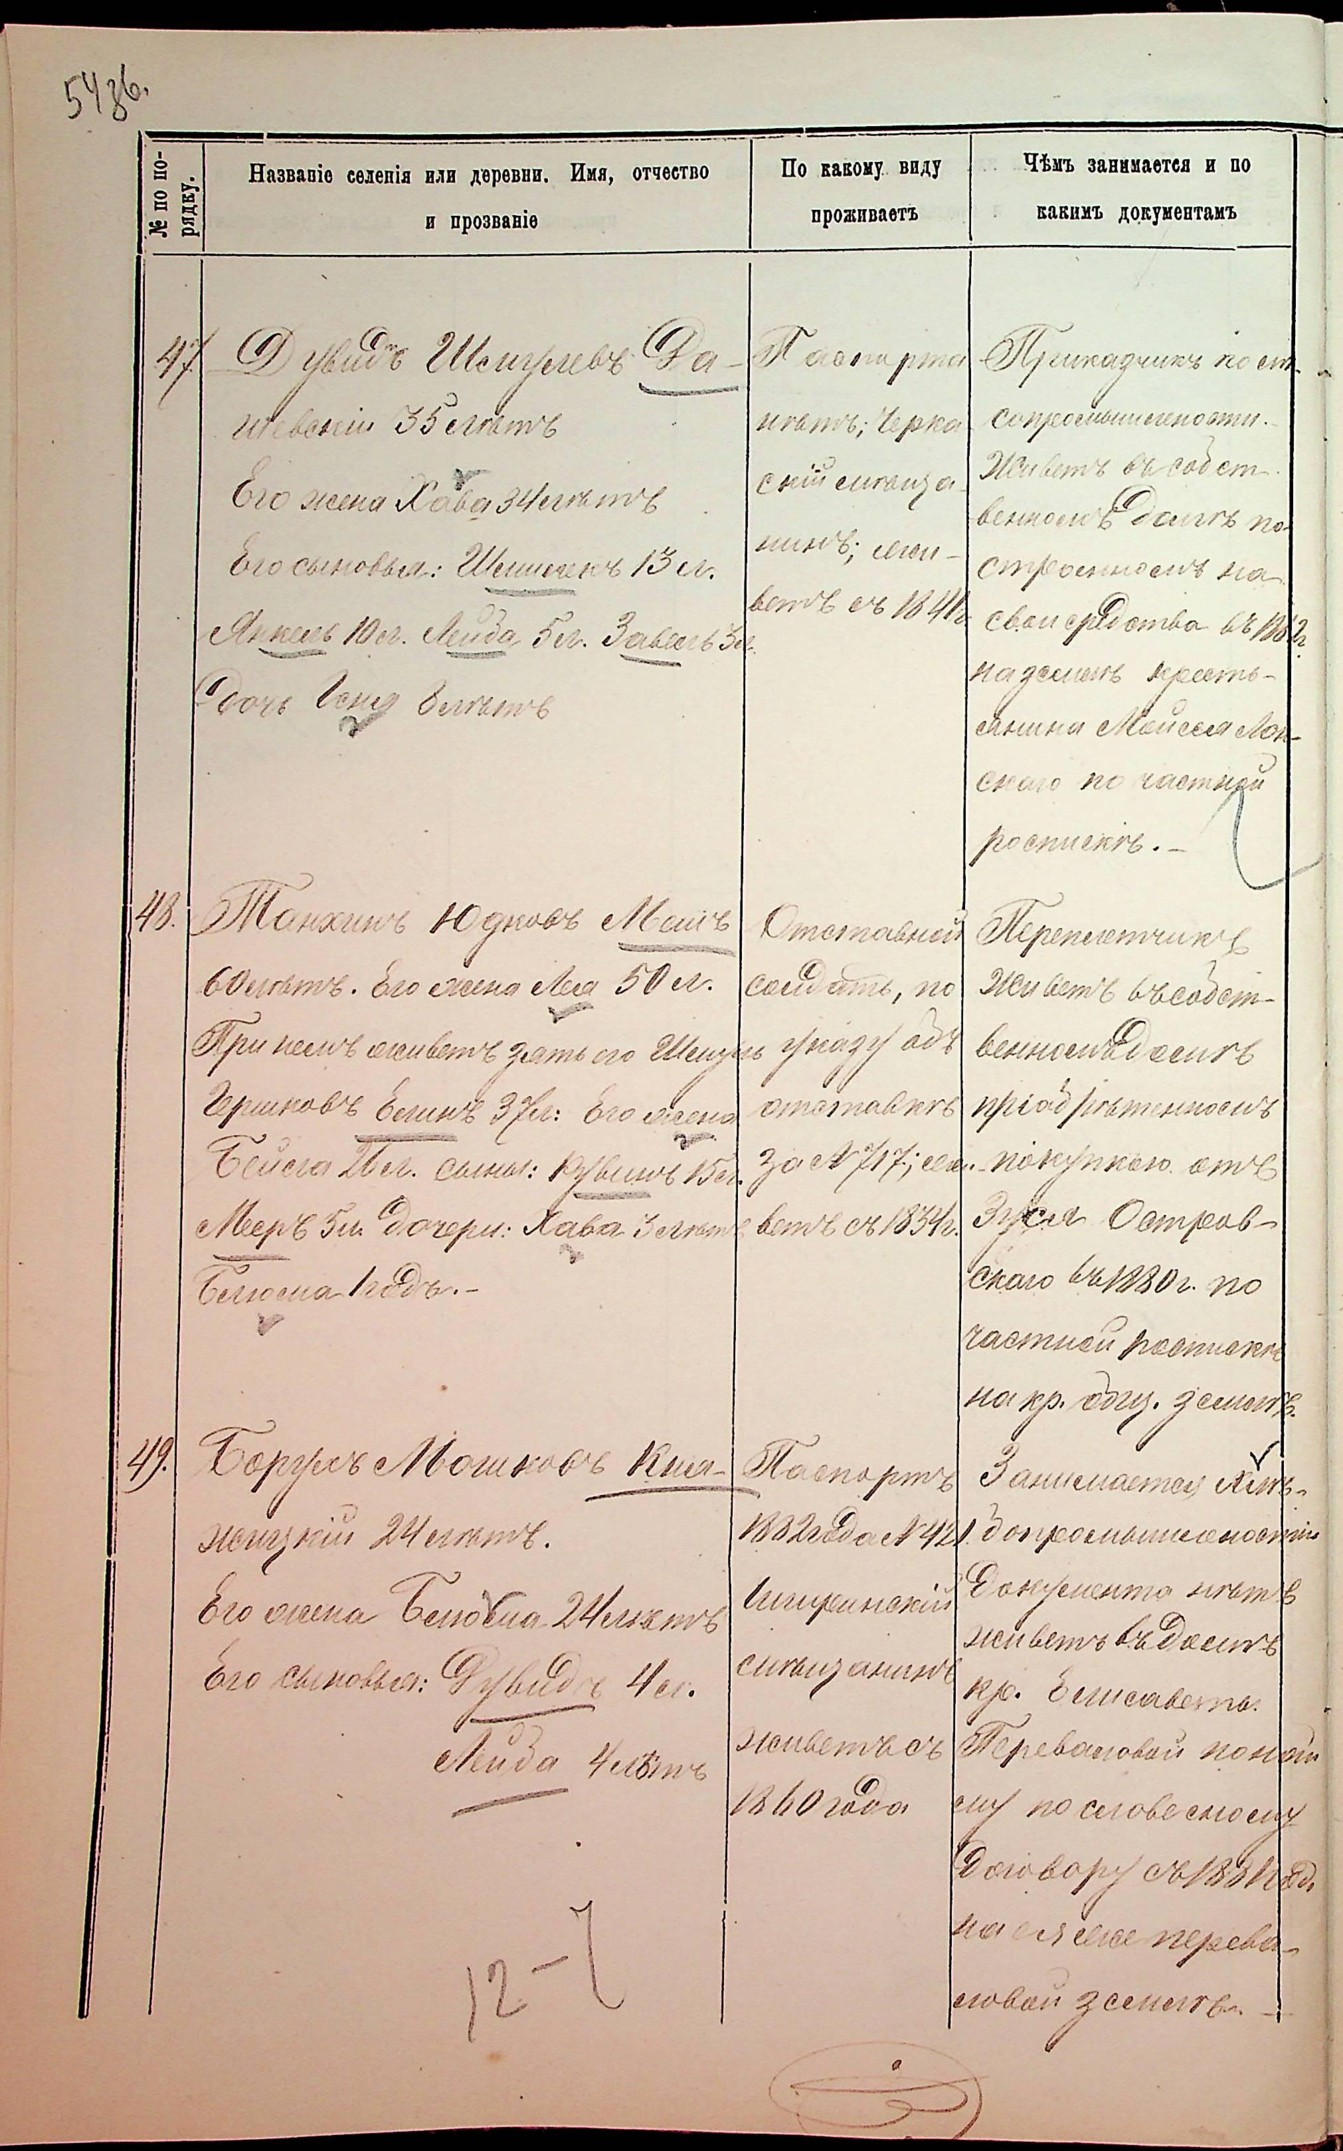 543б.
№ по по-
рядку.
Названіе селенія или деревни. Имя, отчество
и прозваніе
По какому виду
проживаетъ
Чѣмъ занимается и по
какимъ документамъ
47
Дувидъ Шмулевъ Да-
шевскій 35 лѣтъ
Его жена Хава 34 лѣтъ
Его сыновья: 13 л.
Янкель 10 л. Лейба 5 л. Завель 3 л.
Дочь Геня 8 лѣтъ
Паспорта
нѣтъ; Черка
скій мѣща-
нинъ; жи-
ветъ съ 1841 г.
Прикащикъ по
Живетъ въ собст-
венномъ домѣ по-
строенномъ на
свои средства въ 1882 г.
на землѣ кресть-
янина Моисея Лон-
скаго по частной
роспискѣ. -
48.
Танхинъ Юдковъ Мать
60 лѣтъ. Его жена Лея 50 л.
При немъ живетъ зять его Шмуль
Гершковъ Елинъ 37 л: Его жена
Бейла 26 л. сыны: Рувинъ 15 л.
Мееръ 5 л. дочери: Хава 3 лѣтъ
Блюма 1 годъ. -
Отставной
солдатъ, по
указу объ
отставкѣ
за № 717; жи-
ветъ съ 1834 г.
Переплетчикъ
Живетъ въ собст-
венномъ домѣ
пріобрѣтенномъ
покупкою отъ
Зуся Остров-
скаго въ 1880 г. по
частной роспискѣ
на кр. общ. землѣ.
49.
Борухъ Мошковъ Кня-
жицкій 24 лѣтъ.
Его жена Блюма 24 лѣтъ
Его сыновья: Дувидъ 4 л.
Лейба 4 лѣтъ
Паспортъ
1882 года № 421
Чигринскій
мѣщанинъ
живетъ съ
1860 года
Занимается хлѣ-
бопромышленностію
Документа нѣтъ
живетъ въ домѣ
кр. Елисаветы
Переваловой по най
му по словесному
договору съ 1881 год.
на ея же перева-
ловой землѣ. -
12 - 7